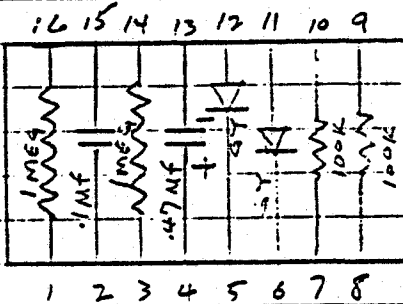 16 15 14 13 12 11 10 9
1 MEG
.1 Mf
1 MEG
.47 Mf
- +
100K
100K
1 2 3 4 5 6 7 8